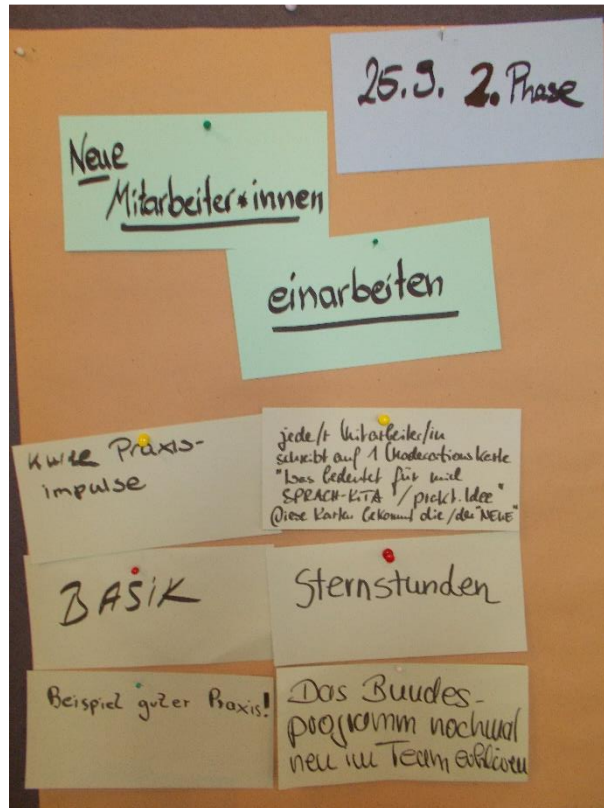 25.9. 2. Phase
Neue
Mitarbeiter*innen
einarbeiten
kurze Praxis-
impulse
jede/r Mitarbeiter/in
schreibt auf 1 Moderationskarte
"Was bedeutet für mich
SPRACH-KiTA"/prakt. Idee"
Diese Karten bekommt die/der "NEUE"
BASiK
Sternstunden
Beispiel guter Praxis!
Das Bundes-
programm nochmal
neu im Team erklären